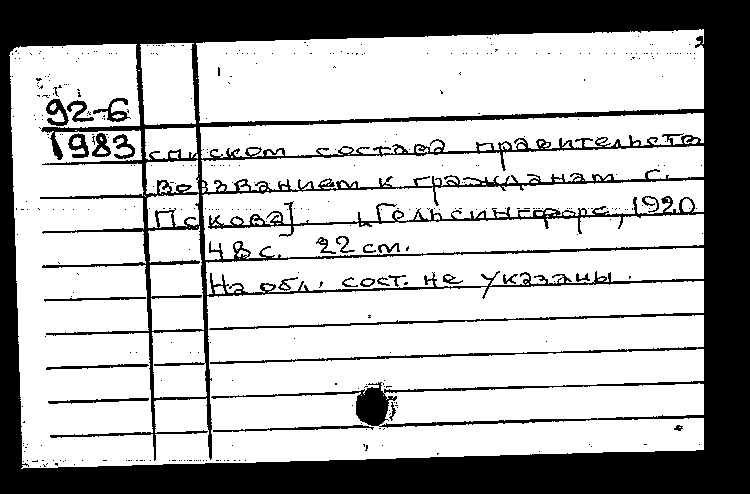 92-6
1983 списком состава правительств
воззванием к гражданам г.
Пскова]. [Гельсингфорс, 1920
48 с. 22 cm.
На обл. сост. не указаны.